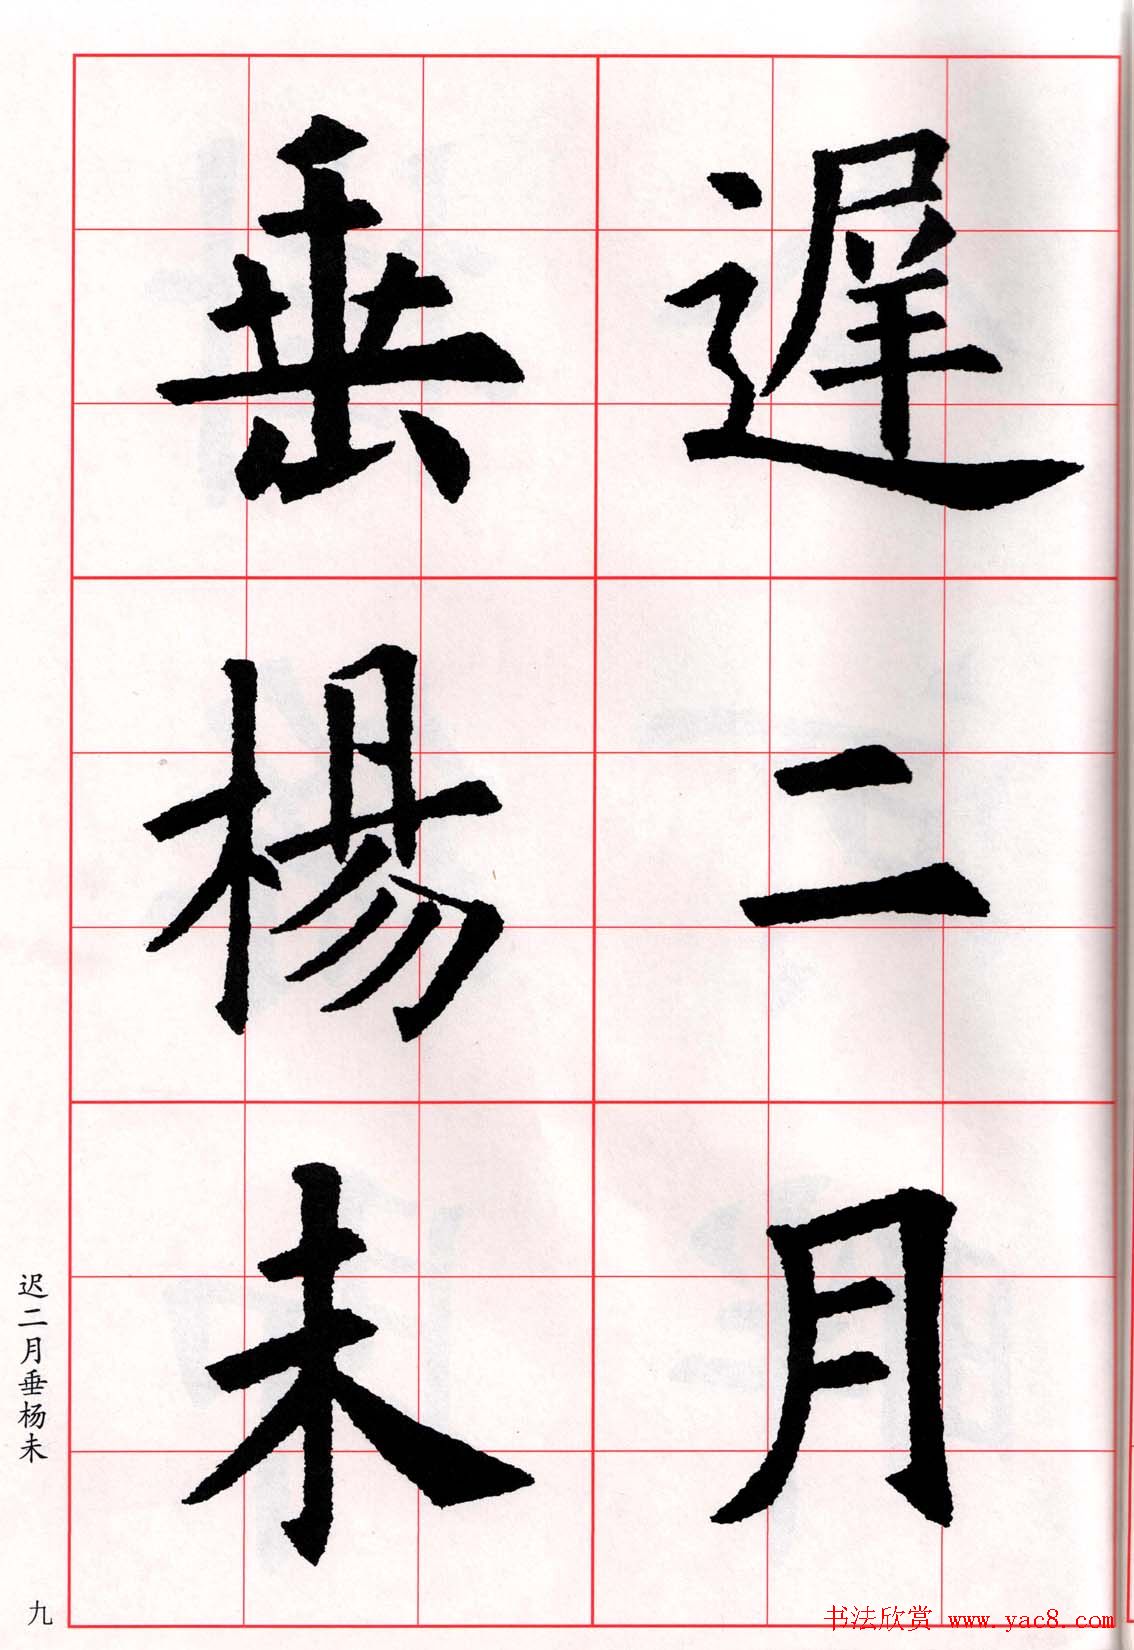 遲二月
垂楊未
迟二月垂杨未
九
书法欣赏 www.yac8.com